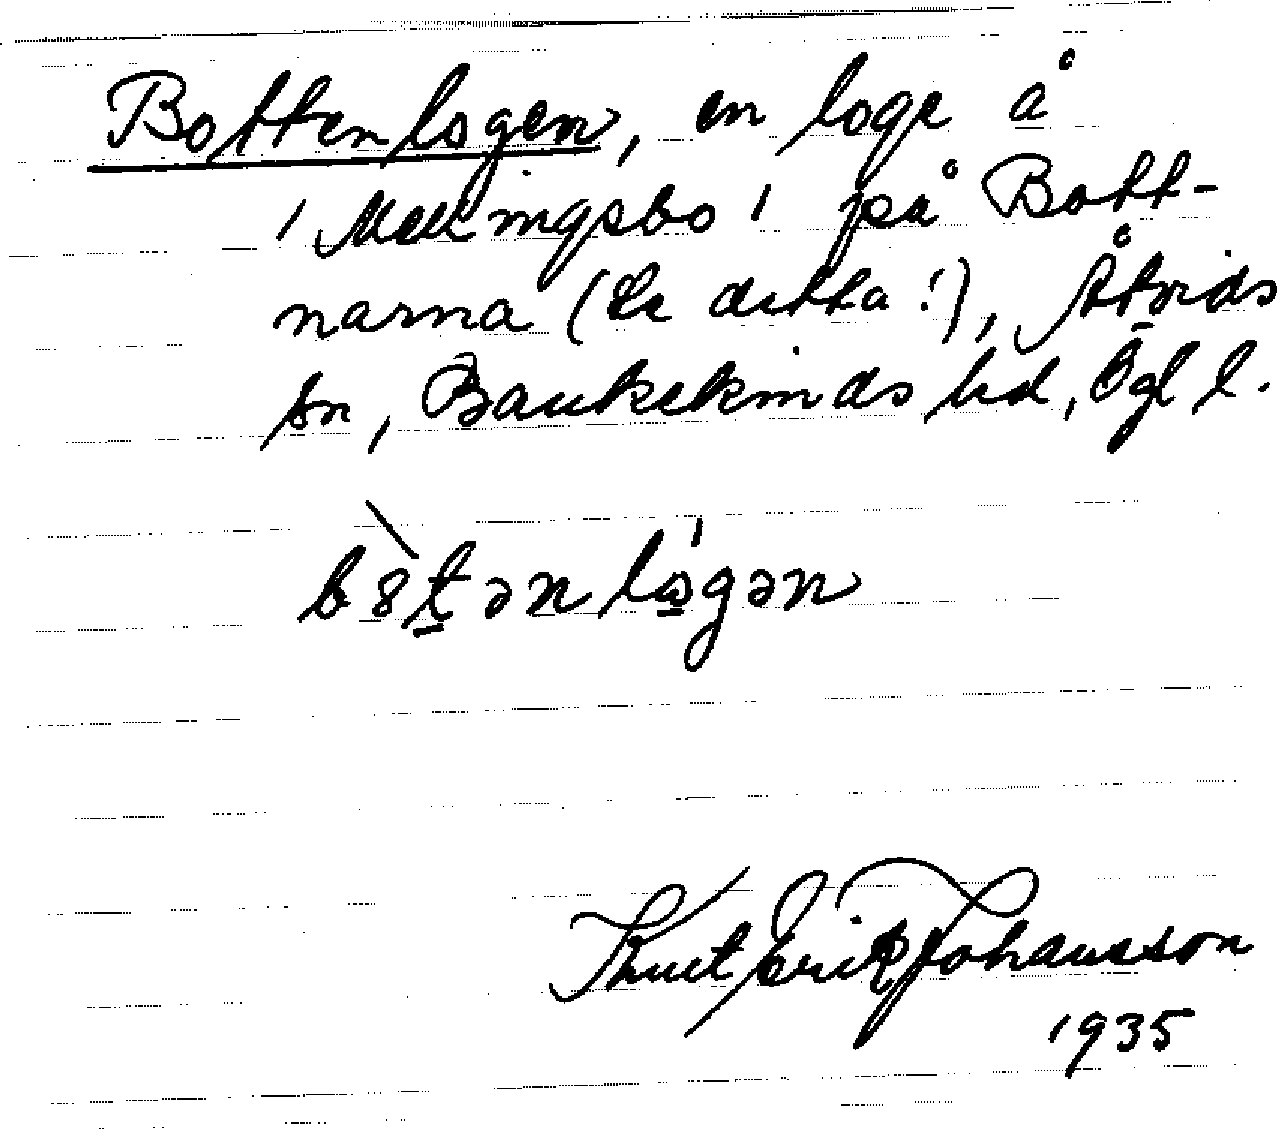 Bottenlogen, en loge å
/ Mellingsbo / på Bott-
narna (Se detta!), Åtvids
sn, Bankekinds hd, Ögl l.
bòtənlógən
Knut Erik Johansson
1935